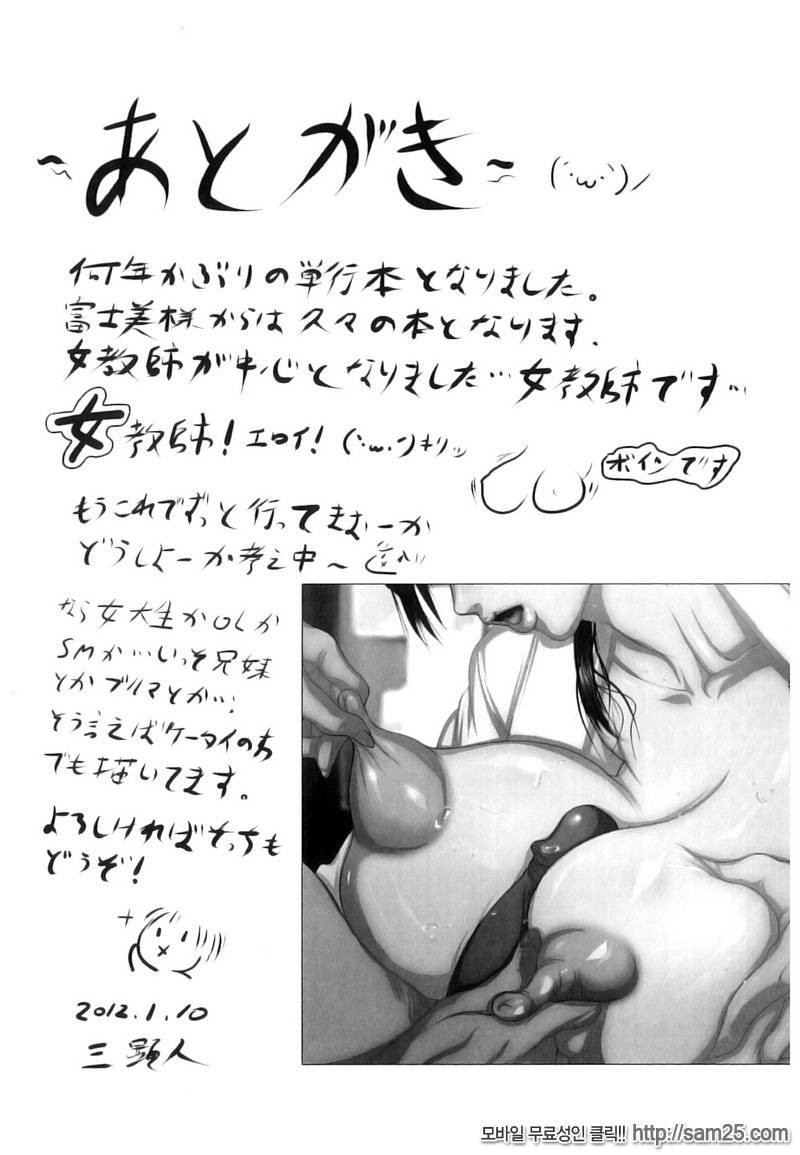 ~あとがき~ (´･ω･`)ノ
何年かぶりの単行本となりました。
富士美様からは久々の本となります.
女教師が中心となりました…女教師です…
女教師!エロイ!(`･ω･´)キリッ
ボインです
もうこれでずっと行ってまおーか
どうしよーか考え中~
女大生かOLか
SMか…いっそ兄妹
とかブルマとか…
そう言えばケータイの方
でも描いてます。
よろしければそっちも
どうぞ!
2012.1.10
三顕人
모바일 무료성인 클릭!! http://sam25.com